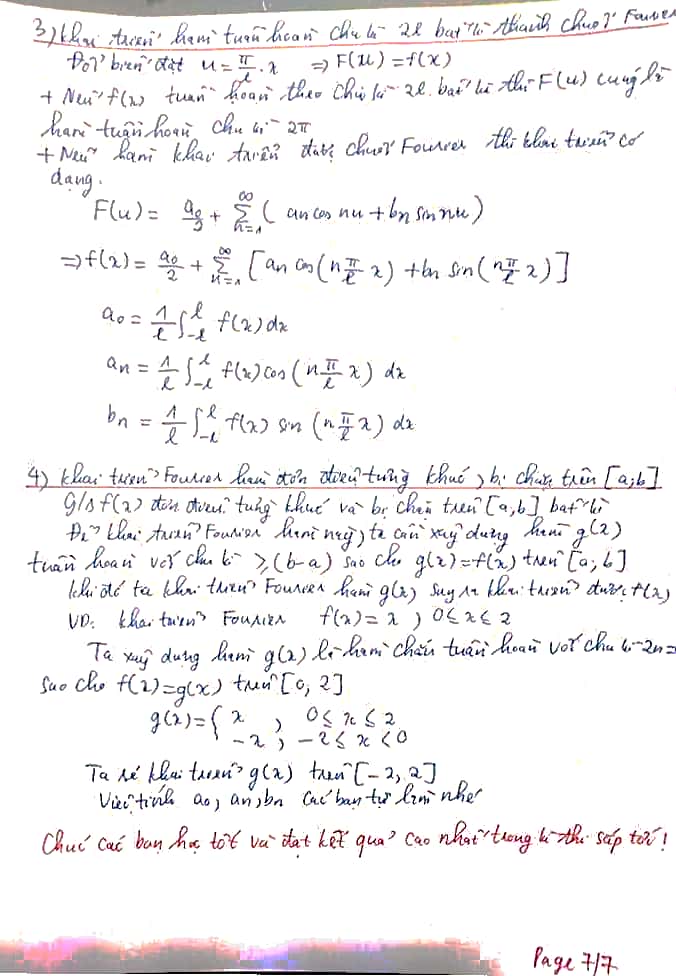 3) Khai triển hàm tuần hoàn chu kì 2l bất kì thành chuỗi Fourier
Đổi biến đặt u = π/l . x ⇒ F(u) = f(x)
+ Nếu f(x) tuần hoàn theo chu kì 2l bất kì thì F(u) cũng là
hàm tuần hoàn chu kì 2π
+ Nếu hàm khai triển được chuỗi Fourier thì khai triển có
dạng.
F(u) = a₀/2 + ∑_{n=1}^{∞} ( an cos nu + bn sin nu )
⇒ f(x) = a₀/2 + ∑_{n=1}^{∞} [ an cos( n π/l x ) + bn sin( n π/l x ) ]
a₀ = 1/l ∫_{-l}^{l} f(x) dx
an = 1/l ∫_{-l}^{l} f(x) cos ( n π/l x ) dx
bn = 1/l ∫_{-l}^{l} f(x) sin ( n π/l x ) dx
4) Khai triển Fourier hàm đơn điệu từng khúc, bị chặn trên [a;b]
G/s f(x) đơn điệu từng khúc và bị chặn trên [a,b] bất kì
Để khai triển Fourier hàm này, ta cần xây dựng hàm g(x)
tuần hoàn với chu kì ≥ (b-a) sao cho g(x) = f(x) trên [a;b]
Khi đó ta khai triển Fourier hàm g(x) suy ra khai triển được f(x)
VD: Khai triển Fourier f(x) = x , 0 ≤ x ≤ 2
Ta xây dựng hàm g(x) là hàm chẵn tuần hoàn với chu kì 2n =
sao cho f(x) = g(x) trên [0, 2]
g(x) = { x , 0 ≤ x ≤ 2
-x , -2 ≤ x < 0
Ta sẽ khai triển g(x) trên [-2, 2]
Việc tính a₀, an, bn các bạn tự làm nhé
Chúc các bạn học tốt và đạt kết quả cao nhất trong kì thi sắp tới!
Page 7/7